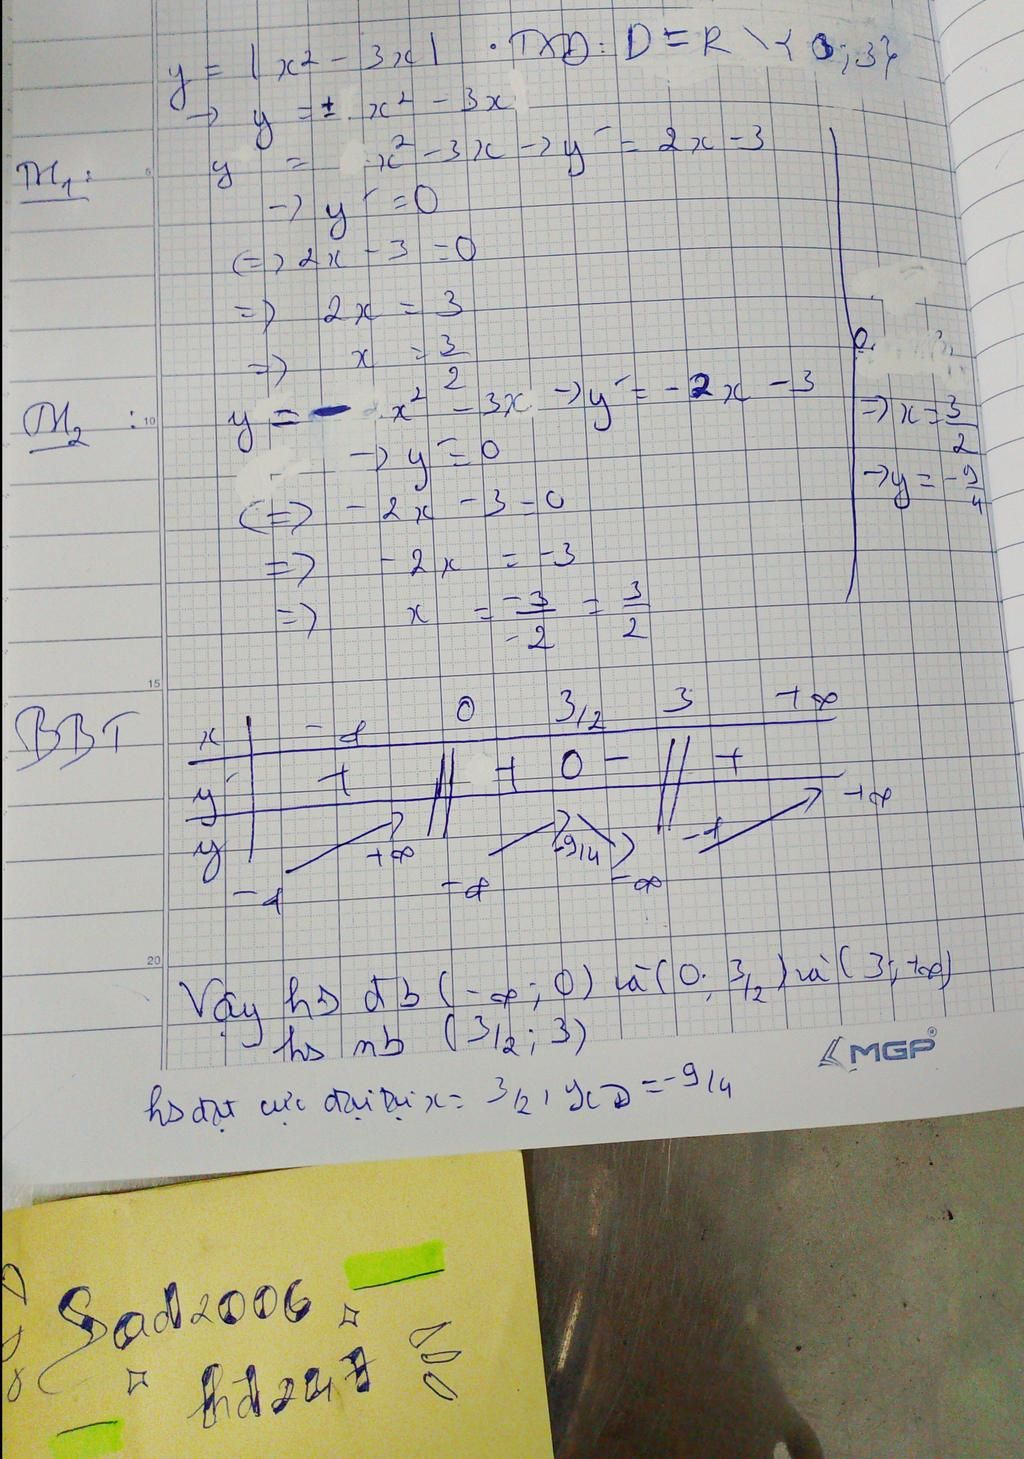 y = |x² - 3x| • TXĐ: D = R \ {0; 3}
→ y = ± x² - 3x
M₁: y = x² - 3x → y' = 2x - 3
→ y' = 0
(=> 2x - 3 = 0
=> 2x = 3
=> x = 3/2
M₂: y = - x² - 3x → y' = -2x - 3
→ y' = 0
(=> -2x - 3 = 0
=> -2x = -3
=> x = -3/-2 = 3/2
=> x = 3/2
→ y = -9/4
BBT
x -∞ 0 3/2 3 +∞
y' + || + 0 - || +
y -∞ +∞ -∞ -9/4 -∞ -∞ +∞
Vậy hs đb (-∞; 0) và (0; 3/2) và (3; +∞)
hs nb (3/2; 3)
hs đạt cực đại tại x = 3/2, yCĐ = -9/4
MGP
5
10
15
20
Sad2006